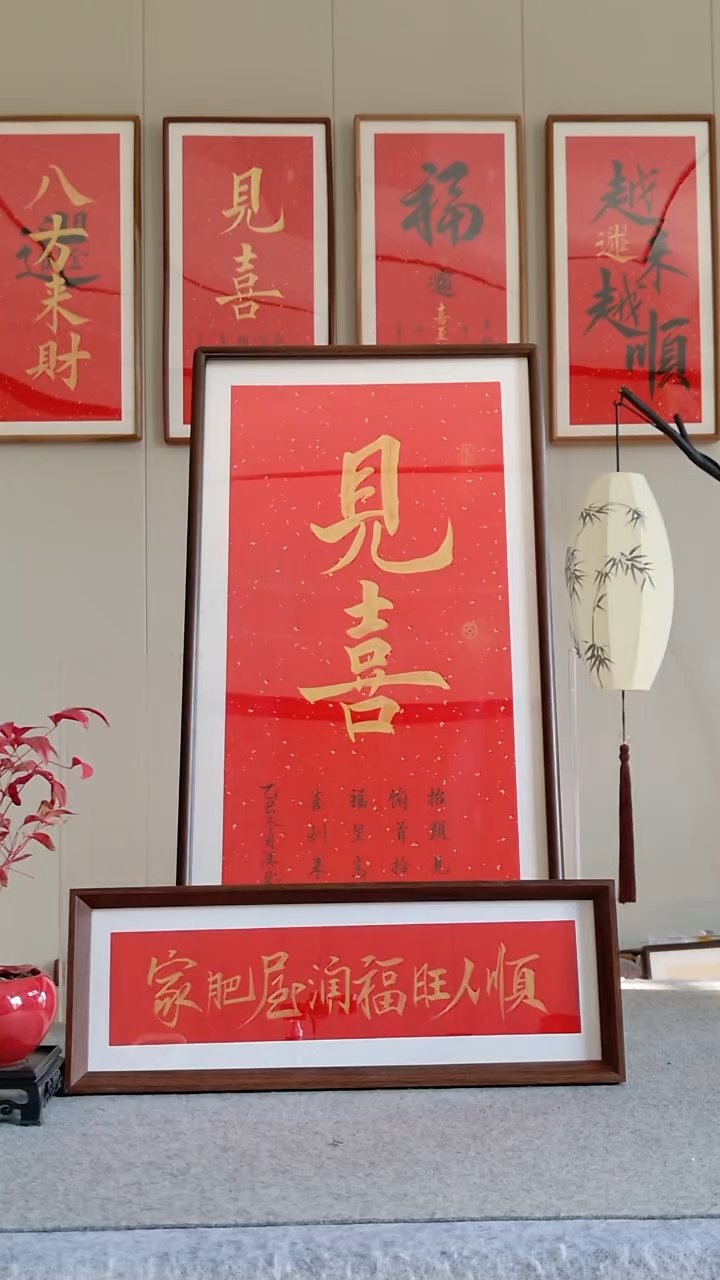 八方来財
見喜
福
喜至
越来越順
見喜
抬頭見
俯首拾
福星高
喜到来
家肥屋润福旺人順